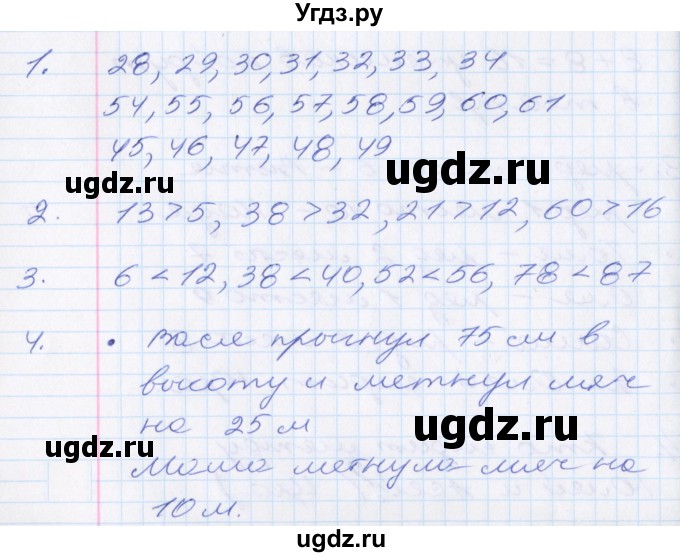 Угдз.ру
1. 28, 29, 30, 31, 32, 33, 34
54, 55, 56, 57, 58, 59, 60, 61
45, 46, 47, 48, 49
ugdz.ru ugdz.ru
2. 13 > 5, 38 > 32, 21 > 12, 60 > 16
3. 6 < 12, 38 < 40, 52 < 56, 78 < 87
4. • Вася прыгнул 75 см в
высоту и метнул мяч
на 25 м
ugdz.ru ugdz.ru
Маша метнула мяч на
10 м.
ugdz.ru